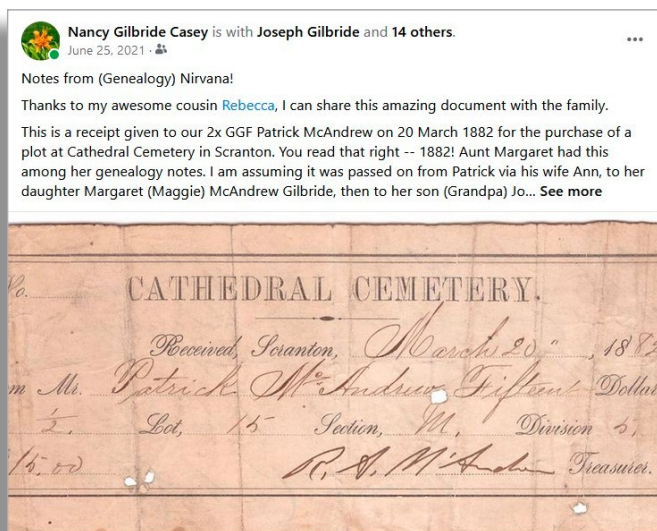 Nancy Gilbride Casey is with Joseph Gilbride and 14 others.
June 25, 2021 ·
Notes from (Genealogy) Nirvana!
Thanks to my awesome cousin Rebecca, I can share this amazing document with the family.
This is a receipt given to our 2x GGF Patrick McAndrew on 20 March 1882 for the purchase of a
plot at Cathedral Cemetery in Scranton. You read that right -- 1882! Aunt Margaret had this
among her genealogy notes. I am assuming it was passed on from Patrick via his wife Ann, to her
daughter Margaret (Maggie) McAndrew Gilbride, then to her son (Grandpa) Jo... See more
No. CATHEDRAL CEMETERY.
Received, Scranton, March 20", 1882
m Mr. Patrick McAndrew Fifteen Dollar
1/2. Lot, 15 Section, M. Division 5,
15.00 R. A. McAndrew Treasurer.